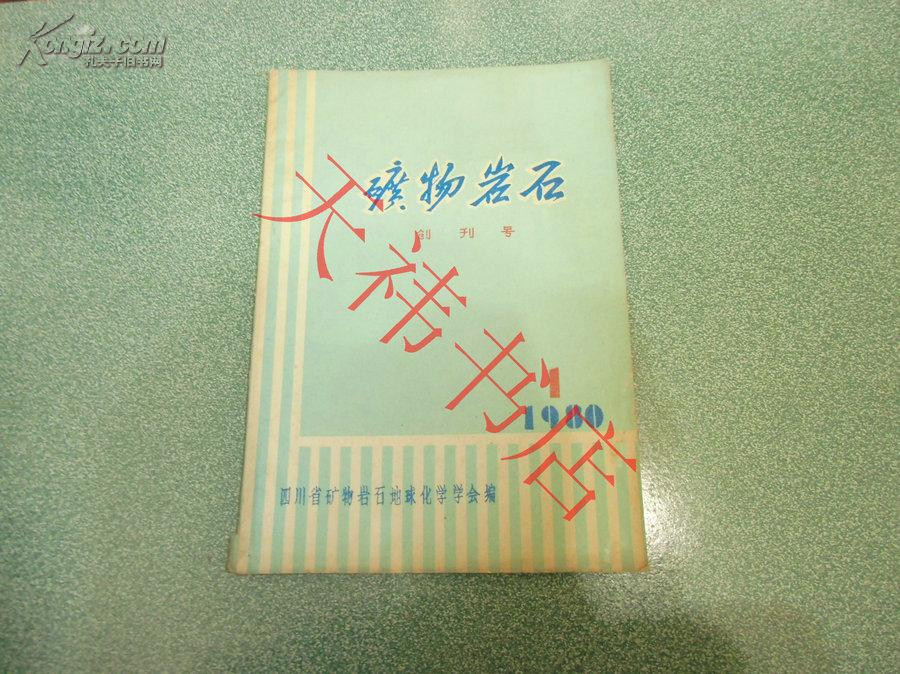 Kongfz.com
孔夫子旧书网
礦物岩石
创刊号
天祎书店
1
1980
四川省矿物岩石地球化学学会编